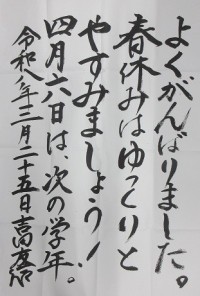 よくがんばりました。
春休みはゆっくりと
やすみましょう！
四月六日は、次の学年。
令和八年三月二十五日